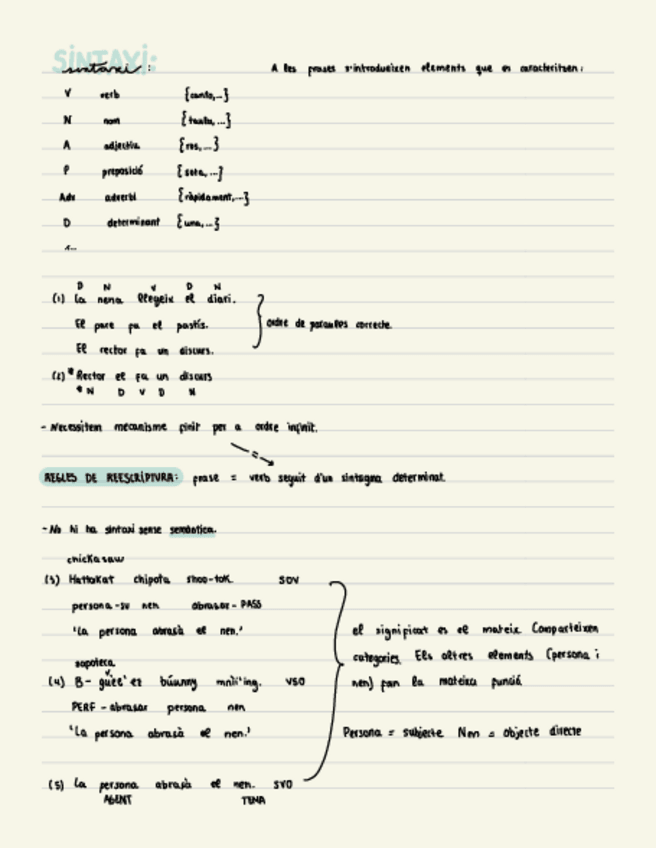 SINTAXI:
sintaxi:
A les frases s'introdueixen elements que es caracteritzen:
V verb {canta,...}
N nom {taula,...}
A adjectiu {ros,...}
P preposició {sota,...}
Adv adverbi {ràpidament,...}
D determinant {una,...}
D N V D N
(1) La nena llegeix el diari.
El pare fa el pastís.
ordre de paraules correcte.
El rector fa un discurs.
(2) *Rector el fa un discurs
*N D V D N
- Necessitem mecanisme finit per a ordre infinit.
REGLES DE REESCRIPTURA: frase = verb seguit d'un sintagma determinat.
- No hi ha sintaxi sense semàntica.
chickasaw
(3) Hattakat chipota shoo-tok. SOV
persona-su nen abrasar-PASS
'La persona abrasà el nen.'
el significat es el mateix Comparteixen
categories. Els altres elements (persona i
nen) fan la mateixa funció
Persona = subjecte Nen = objecte directe
zapoteca
(4) B- VSO
PERF-abrasar persona nen
'La persona abrasà el nen.'
(5) La persona abrasà el nen. SVO
AGENT TEMA